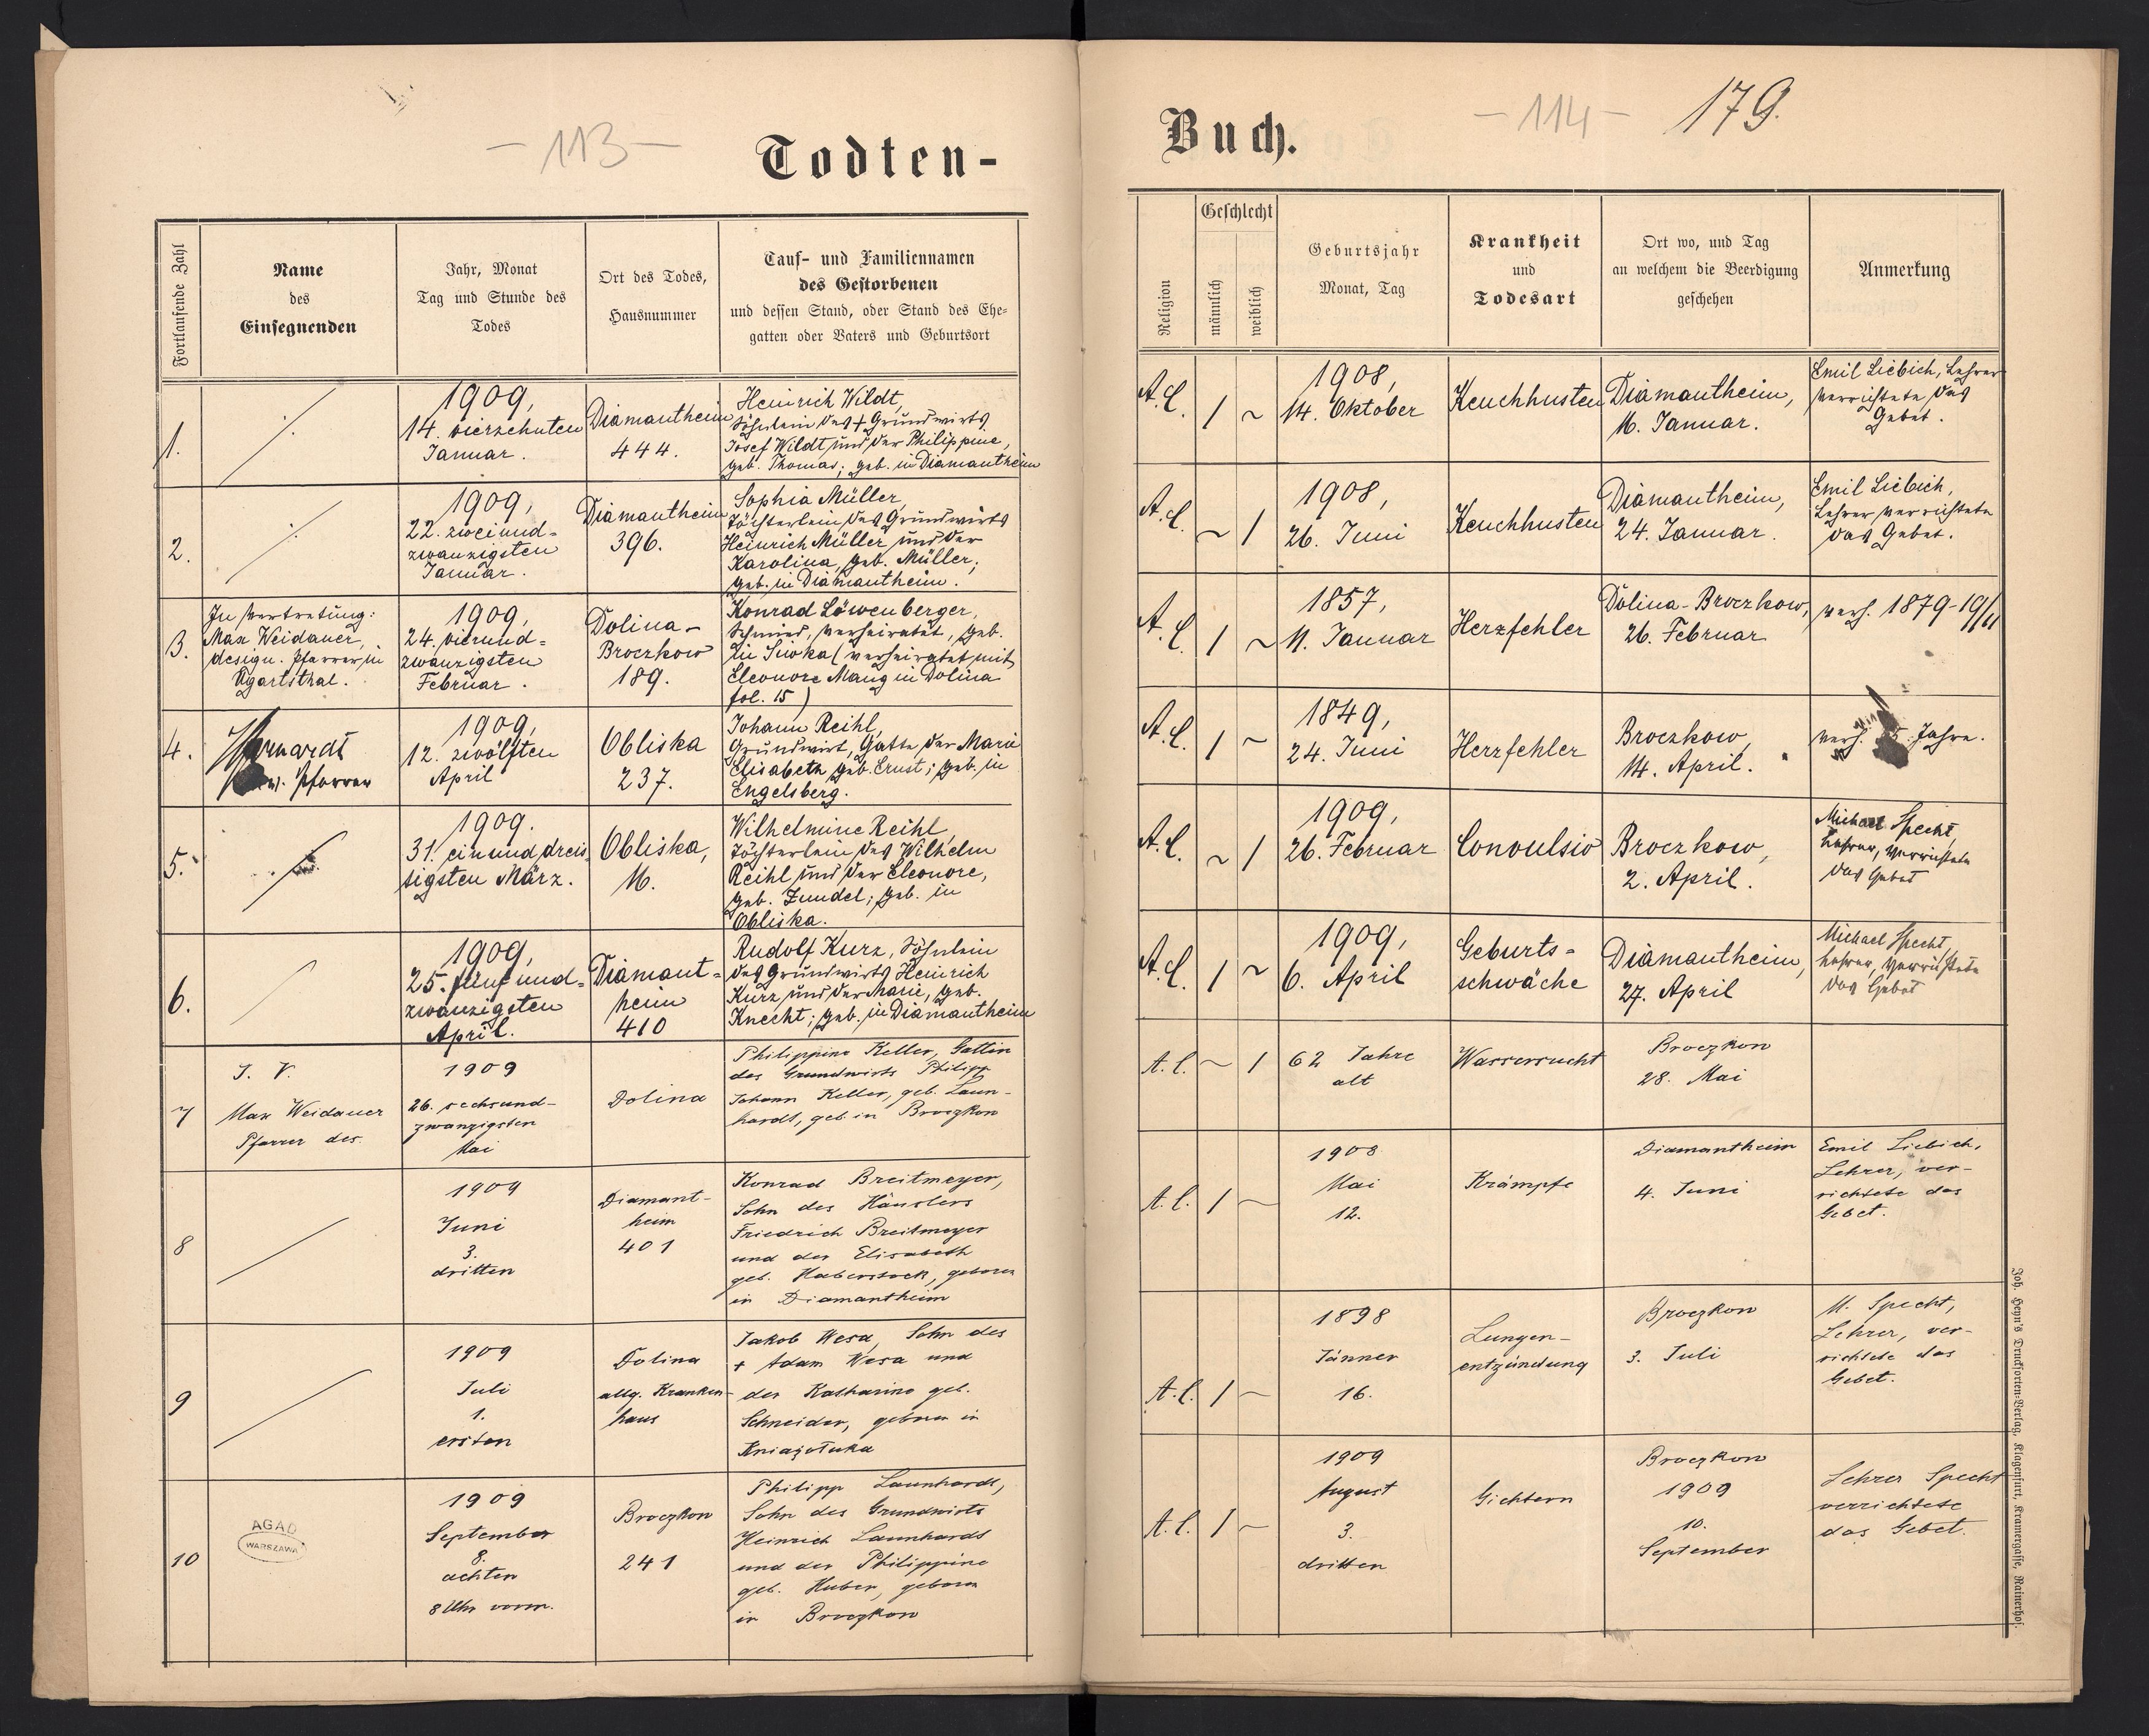 – 113 –
Todten-
Fortlaufende Zahl
Name
des
Einsegnenden
Jahr, Monat
Tag und Stunde des
Todes
Ort des Todes,
Hausnummer
Tauf- und Familiennamen
des Gestorbenen
und dessen Stand, oder Stand des Ehe-
gatten oder Vaters und Geburtsort
1.
1909,
14. vierzehnten
Januar.
Diamantheim
444.
Heinrich Wildt,
Söhnlein des + Grundwirts
Josef Wildt und der Philippine,
geb. Thomas; geb. in Diamantheim
2.
1909,
22. zweiund-
zwanzigsten
Januar.
Diamantheim
396.
Sophia Müller,
Töchterlein des Grundwirts
Heinrich Müller und der
Karolina, geb. Müller;
geb. in Diamantheim.
3.
In Vertretung:
Max Weidauer,
design. Pfarrer in
Ugartsthal.
1909,
24. vierund-
zwanzigsten
Februar.
Dolina-
Broczkow
189.
Konrad Löwenberger,
Schmied, verheiratet, geb.
in Siwka (verheiratet mit
Eleonore Mang in Dolina
fol. 15)
4.
Pfarrer
1909,
12. zwölften
April
Obliska
237.
Johann Reihl,
Grundwirt, Gatte der Marie
Elisabeth geb. Ernst; geb. in
Engelsberg.
5.
1909.
31. einunddreis
sigsten März.
Obliska,
16.
Wilhelmine Reihl,
Töchterlein des Wilhelm
Reihl und der Eleonore,
geb. Zundel; geb. in
Obliska.
6.
1909,
25. fünfund-
zwanzigsten
April.
Diamant-
heim
410
Rudolf Kurz, Söhnlein
des Grundwirts Heinrich
Kurz und der Marie, geb.
Knecht; geb. in Diamantheim
7
I. V.
Max Weidauer
Pfarrer des.
1909
26. sechsund-
zwanzigsten
Mai
Dolina
Philippine Keller, Gattin
des Grundwirts Philipp
Johann Keller, geb. Laun-
hardt, geb. in Broczkow
8
1909
Juni
3.
dritten
Diamant-
heim
401
Konrad Breitmeyer,
Sohn des Häuslers
Friedrich Breitmeyer
und der Elisabeth
geb. Haberstock, geboren
in Diamantheim
9
1909
Juli
1.
ersten
Dolina
allg. Kranken-
haus
Jakob Wesa, Sohn des
+ Adam Wesa und
der Katharina geb.
Schneider, geboren in
Kniaziołuka
10
AGAD
WARSZAWA
1909
September
8.
achten
8 Uhr vorm.
Broczkow
241
Philipp Launhardt,
Sohn des Grundwirts
Heinrich Launhardt
und der Philippine
geb. Huber, geboren
in Broczkow
Buch.
– 114 –
179.
Religion
Geschlecht
männlich
weiblich
Geburtsjahr
Monat, Tag
Krankheit
und
Todesart
Ort wo, und Tag
an welchem die Beerdigung
geschehen
Anmerkung
A.C.
1 ~
1908,
14. Oktober
Keuchhusten
Diamantheim,
16. Januar.
Emil Liebich, Lehrer
verrichtete das
Gebet.
A.C.
~ 1
1908,
26. Juni
Keuchhusten
Diamantheim,
24. Januar.
Emil Liebich,
Lehrer verrichtete
das Gebet.
A.C.
1 ~
1857,
11. Januar
Herzfehler
Dolina-Broczkow,
26. Februar
verh. 1879-19/11
A.C.
1 ~
1849,
24. Juni
Herzfehler
Broczkow,
14. April.
verh. Jahre.
A.C.
~ 1
1909,
26. Februar
Convulsio
Broczkow,
2. April.
Michael Specht,
Lehrer, verrichtete
das Gebet
A.C.
1 ~
1909,
6. April
Geburts-
schwäche
Diamantheim,
27. April
Michael Specht,
Lehrer, verrichtete
das Gebet
A.C.
~ 1
62 Jahre
alt
Wassersucht
Broczkow
28. Mai
A.C.
1 ~
1908
Mai
12.
Krämpfe
Diamantheim
4. Juni
Emil Liebich,
Lehrer, ver-
richtete das
Gebet.
A.C.
1 ~
1898
Jänner
16.
Lungen-
entzündung
Broczkow
3. Juli
M. Specht,
Lehrer, ver-
richtete das
Gebet.
A.C.
1 ~
1909
August
3.
dritten
Gichtern
Broczkow
1909
10.
September
Lehrer Specht
verrichtete
das Gebet.
Joh. Heyn's Drucksorten-Verlag, Klagenfurt, Kramergasse, Rainerhof.